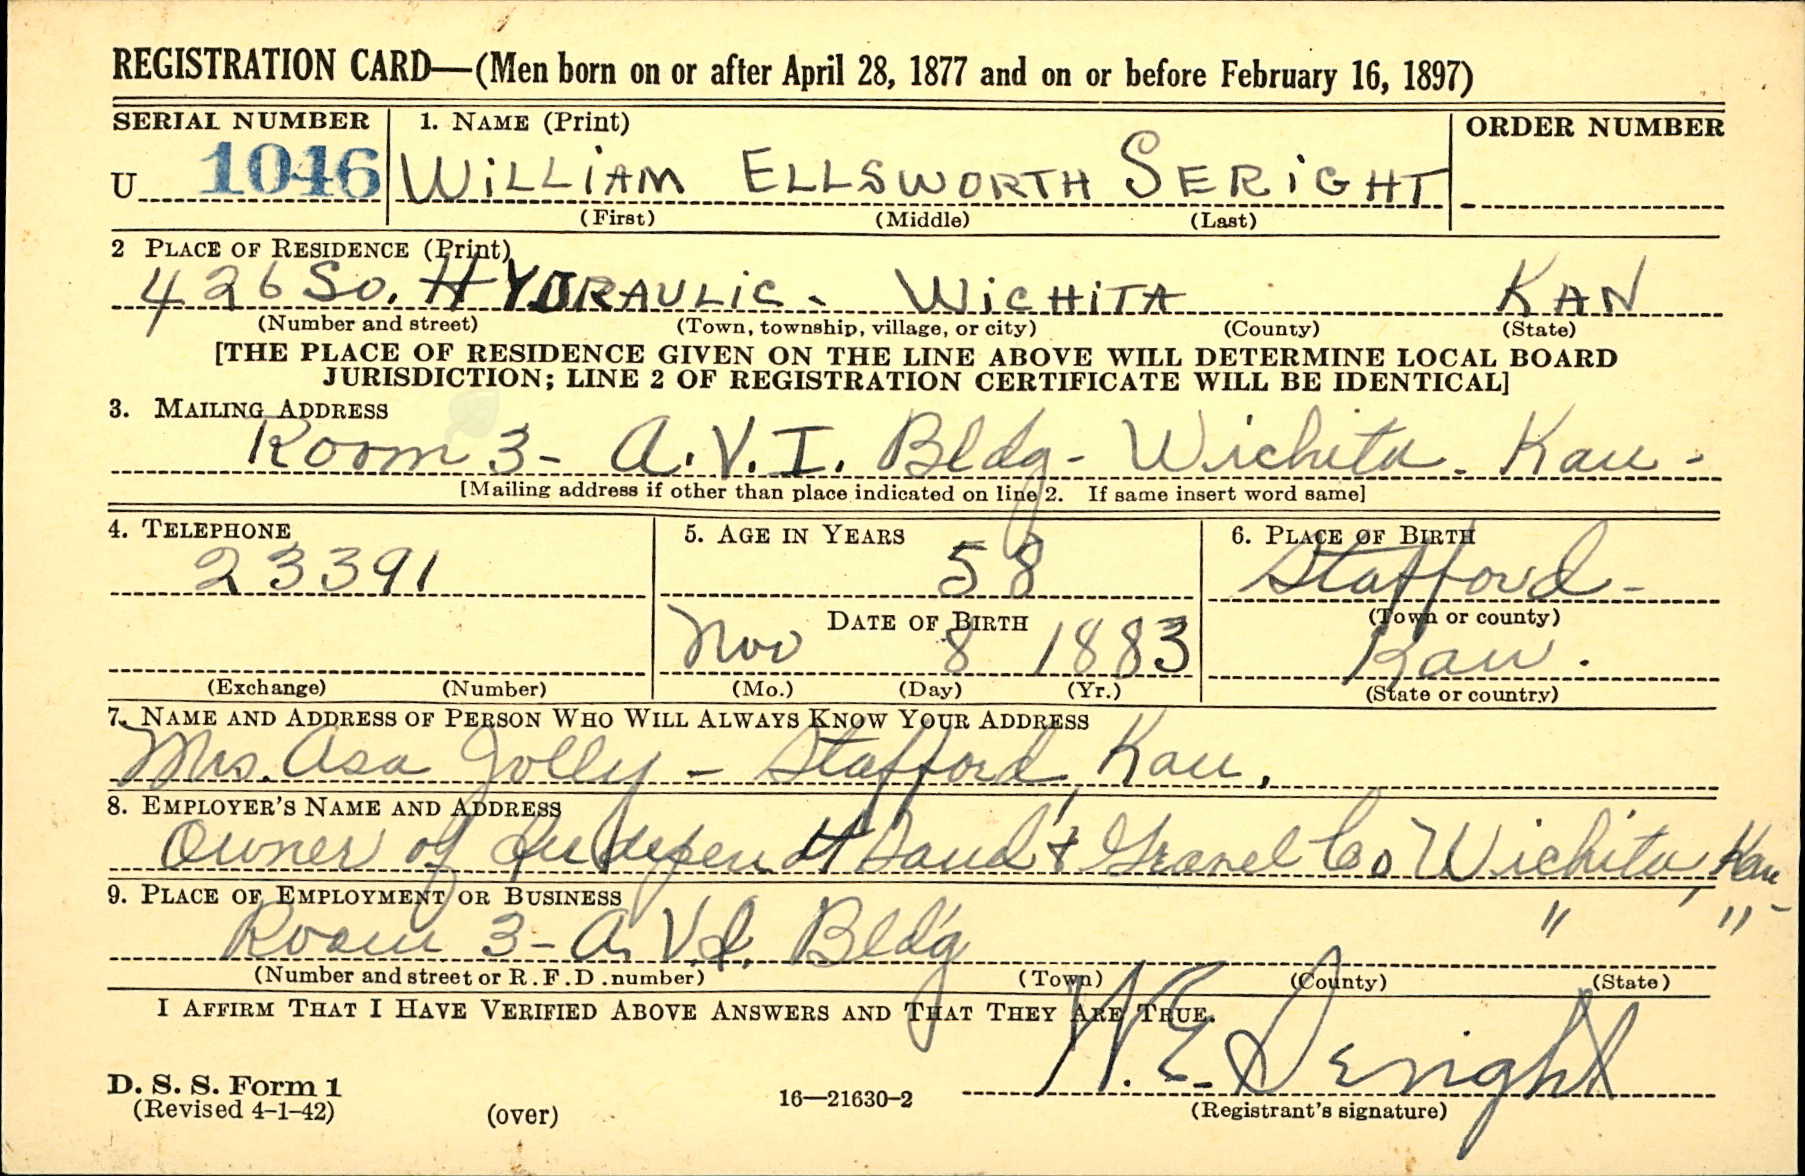 REGISTRATION CARD—(Men born on or after April 28, 1877 and on or before February 16, 1897)
SERIAL NUMBER 1. NAME (Print) ORDER NUMBER
U 1046 WILLIAM ELLSWORTH SERIGHT
(First) (Middle) (Last)
2 PLACE OF RESIDENCE (Print)
426 So. HYDRAULIC - WICHITA KAN
(Number and street) (Town, township, village, or city) (County) (State)
[THE PLACE OF RESIDENCE GIVEN ON THE LINE ABOVE WILL DETERMINE LOCAL BOARD
JURISDICTION; LINE 2 OF REGISTRATION CERTIFICATE WILL BE IDENTICAL]
3. MAILING ADDRESS
Room 3- A.V.I. Bldg- Wichita. Kan-
[Mailing address if other than place indicated on line 2. If same insert word same]
4. TELEPHONE 5. AGE IN YEARS 6. PLACE OF BIRTH
23391 58 Stafford-
DATE OF BIRTH (Town or county)
Nov 8 1883 Kan.
(Exchange) (Number) (Mo.) (Day) (Yr.) (State or country)
7. NAME AND ADDRESS OF PERSON WHO WILL ALWAYS KNOW YOUR ADDRESS
Mrs. Asa Jolly - Stafford, Kan.
8. EMPLOYER'S NAME AND ADDRESS
Owner of Independent Sand & Gravel Co Wichita, Kan
9. PLACE OF EMPLOYMENT OR BUSINESS
Room 3- A.V.I. Bldg " "-
(Number and street or R.F.D. number) (Town) (County) (State)
I AFFIRM THAT I HAVE VERIFIED ABOVE ANSWERS AND THAT THEY ARE TRUE.
W. E. Seright
D. S. S. Form 1
(Revised 4-1-42) (over) 16—21630-2 (Registrant's signature)